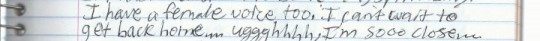 I have a female voice too. I cant wait to
get back home... uggghhhh, I'm sooo close...